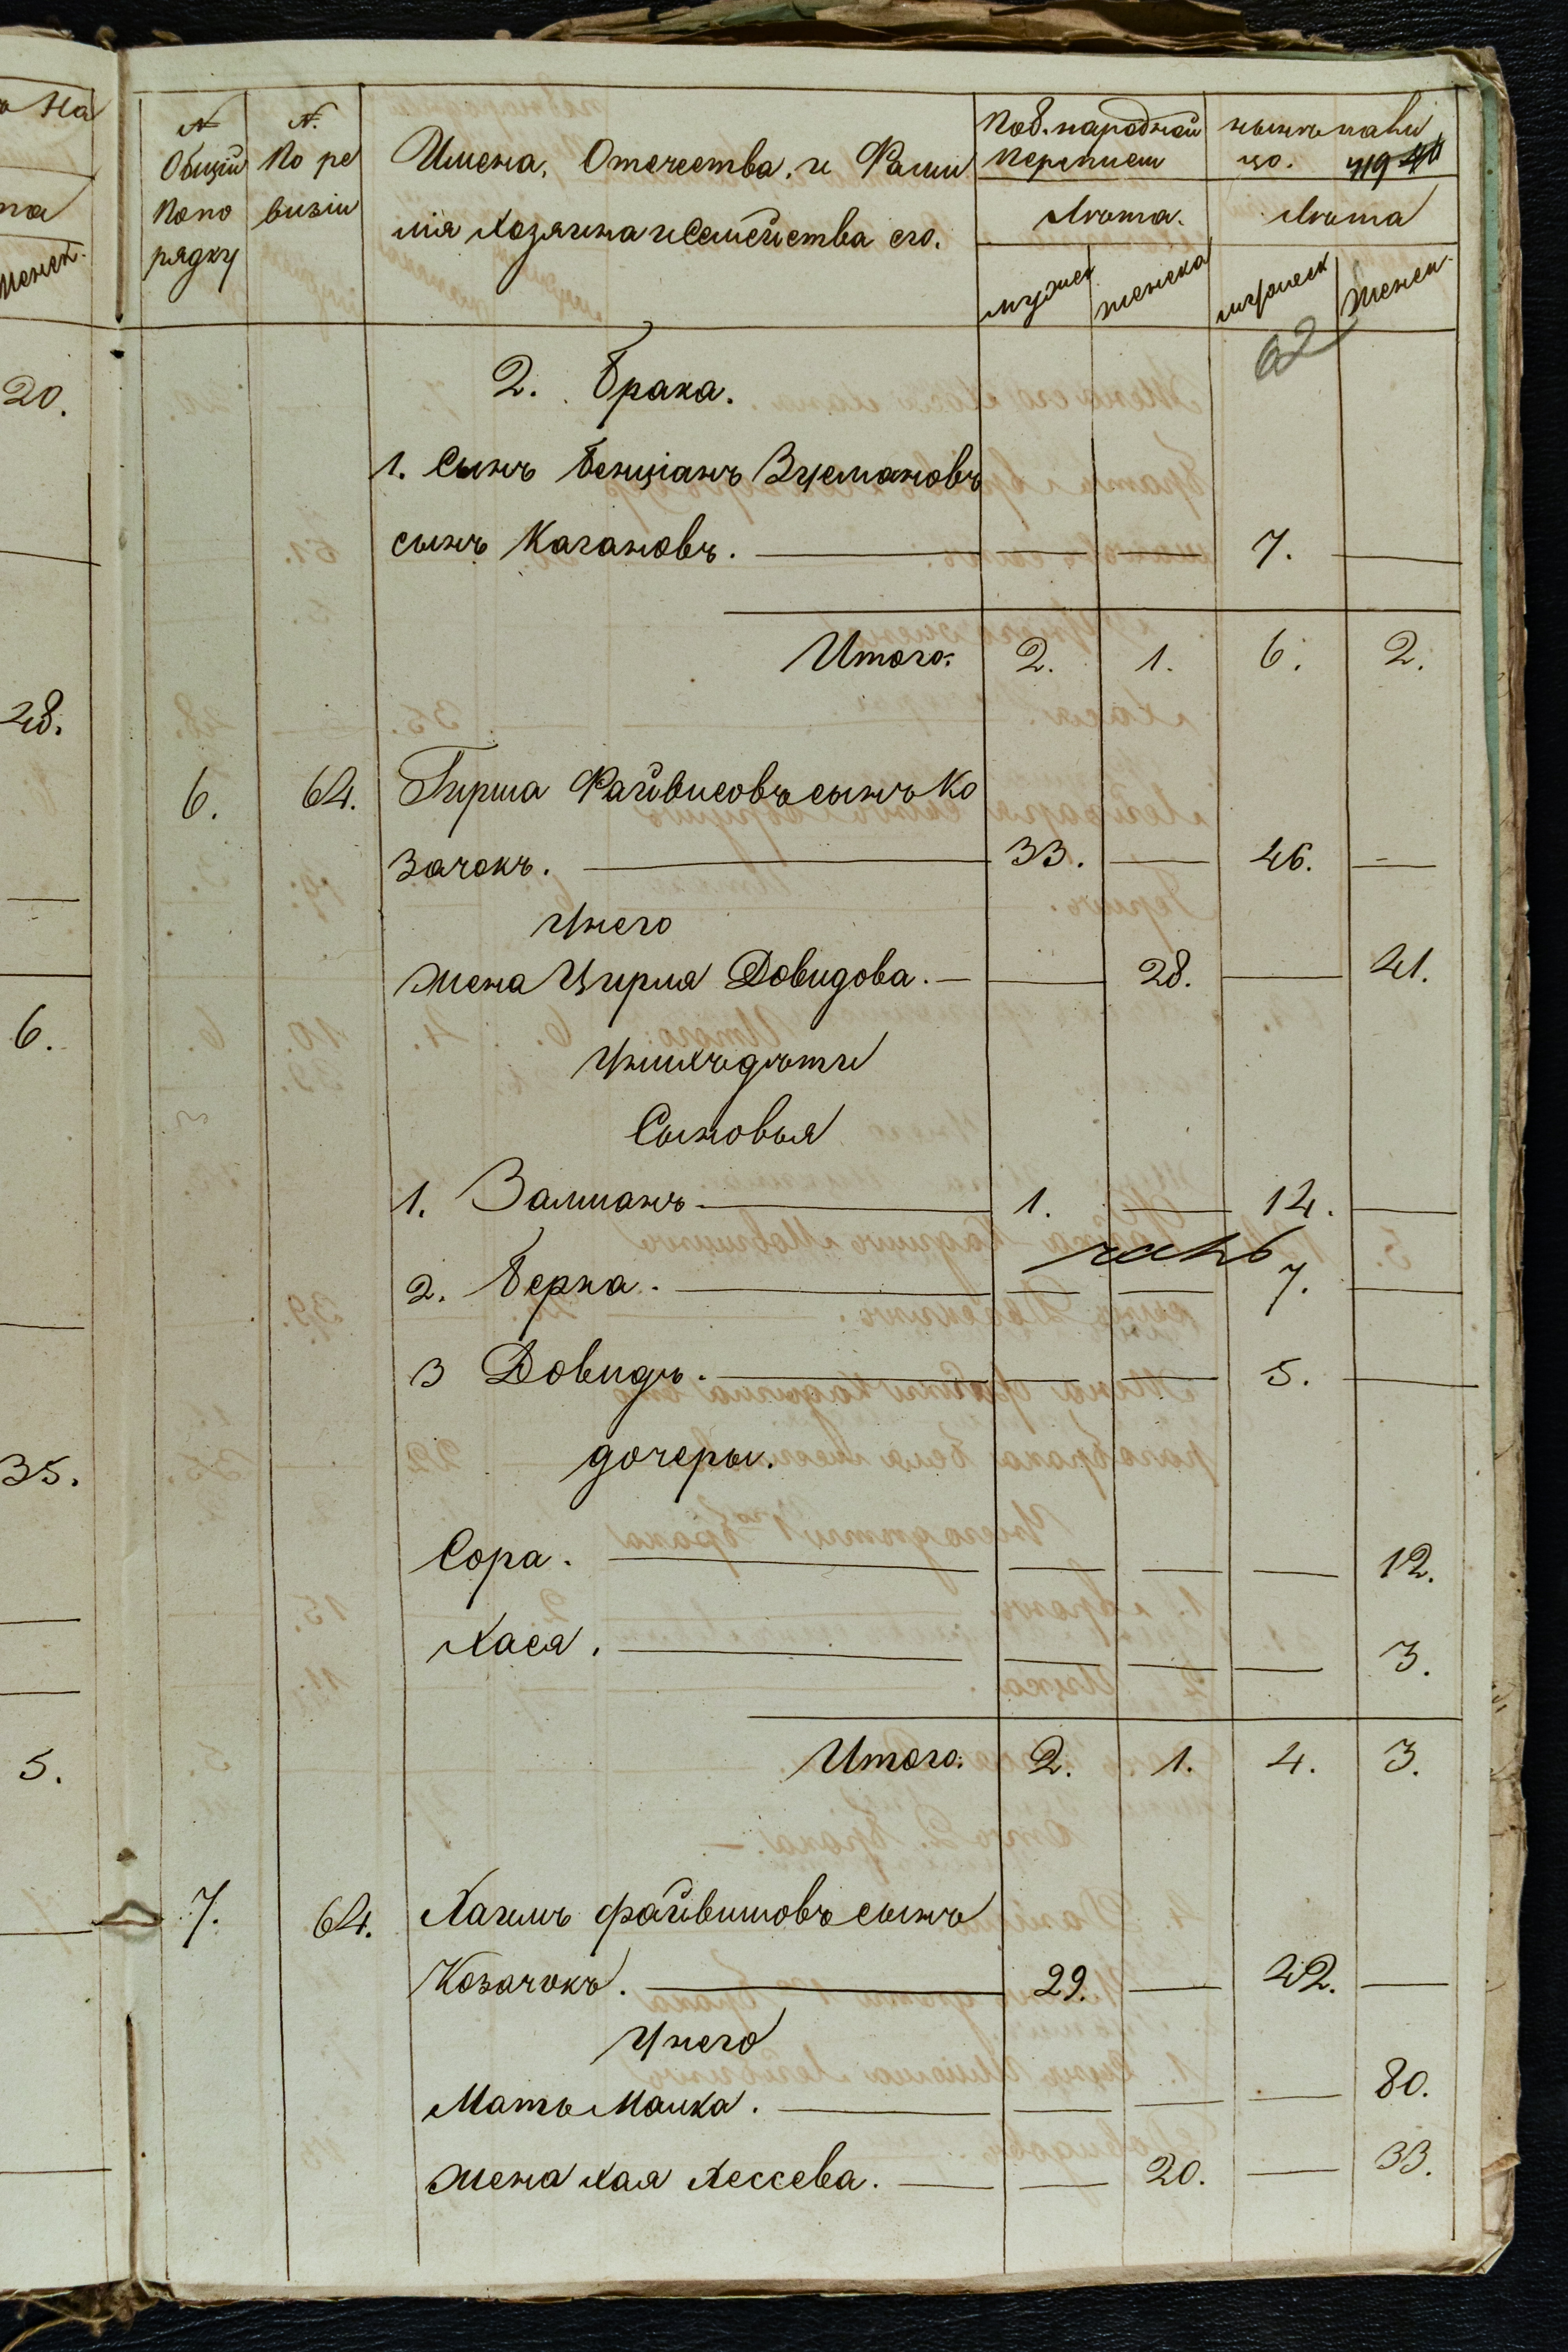 на
на
Женск.
20.
28.
6.
35.
5.
№ Общій Попо рядку
№. По ре визіи
Имена, Отечества, и Фами
лія Хозяина и Семейства его.
По 8. народной переписи
нынѣ нали цо.
Лѣта.
Лѣта
мужск
женска
мужеск
Женск.
62
2. Брака.
1. Сынъ Бенціанъ Зусмановъ
сынъ Кагановъ. — — — 7. —
Итого: 2. 1. 6. 2.
6. 64. Гирша Файвисовъ сынъ Ко
зачокъ. — 33. — 46. —
Унего
жена Цирля Довидова. — — 28. — 41.
Унихъ дѣти
Сыновья
1. Залманъ — 1. — 14. —
2. Берка. — — — 7. —
3 Довидъ. — — — 5. —
дочеры.
Сора. — — — — 12.
Хася. — — — — 3.
Итого: 2. 1. 4. 3.
7. 64. Хаимъ файвишовъ сынъ
Козачокъ. — 29. — 42. —
Унего
Мать Малка. — — — — 80.
жена хая Лессева. — — 20. — 33.